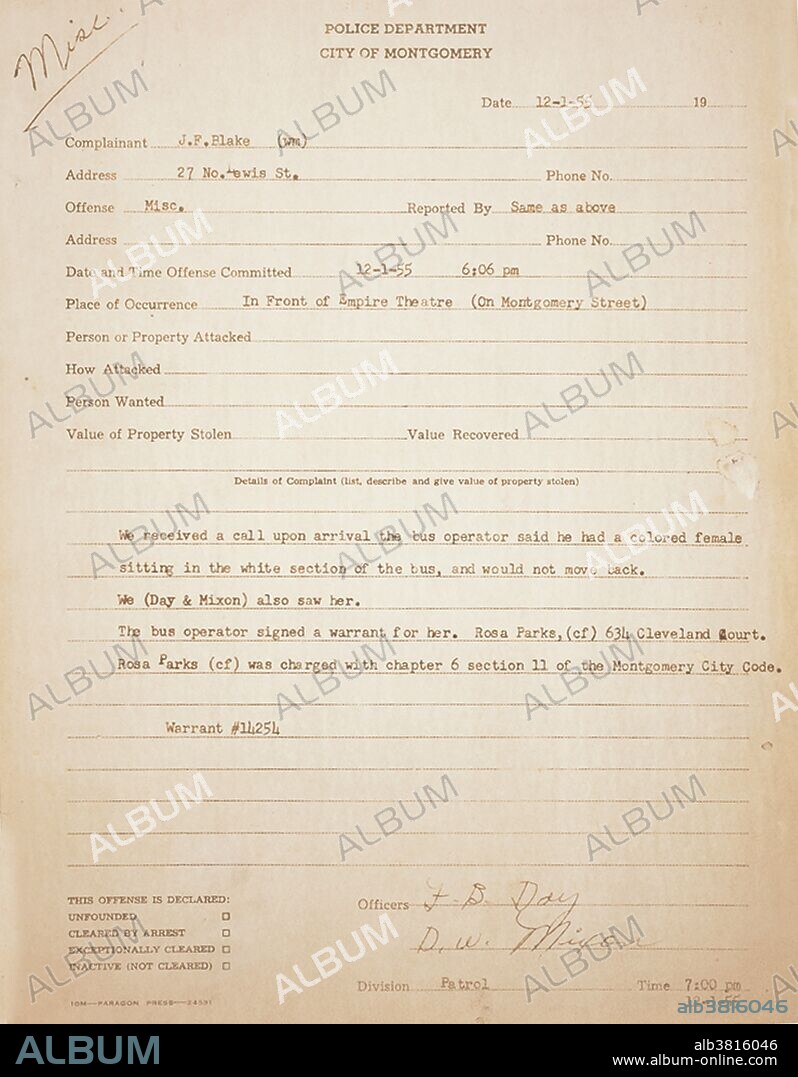 Misc.
POLICE DEPARTMENT
CITY OF MONTGOMERY
Date 12-1-55 19
Complainant J.F.Blake (wm)
Address 27 No.Lewis St. Phone No.
Offense Misc. Reported By Same as above
Address Phone No.
Date and Time Offense Committed 12-1-55 6:06 pm
Place of Occurrence In Front of Empire Theatre (On Montgomery Street)
Person or Property Attacked
How Attacked
Person Wanted
Value of Property Stolen Value Recovered
Details of Complaint (list, describe and give value of property stolen)
We received a call upon arrival the bus operator said he had a colored female
sitting in the white section of the bus, and would not move back.
We (Day & Mixon) also saw her.
The bus operator signed a warrant for her. Rosa Parks, (cf) 634 Cleveland Court.
Rosa Parks (cf) was charged with chapter 6 section 11 of the Montgomery City Code.
Warrant #14254
THIS OFFENSE IS DECLARED:
UNFOUNDED
CLEARED BY ARREST
EXCEPTIONALLY CLEARED
INACTIVE (NOT CLEARED)
Officers F. B. Day
D. W. Mixon
Division Patrol Time 7:00 pm
12-1-55
10M—PARAGON PRESS—24531
alb3816046
ALBUM
alb3816046
www.album-online.com